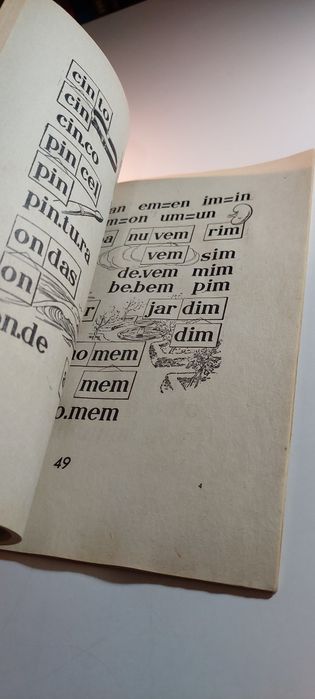 cin to
cin
cin.co
pin cel
pin
pin.tu.ra
on das
on
on.de
an em=en im=in
om=on um=un
nu vem rim
vem sim
de.vem mim
be.bem pim
r jar dim
dim
mem
mem
o.mem
49
4